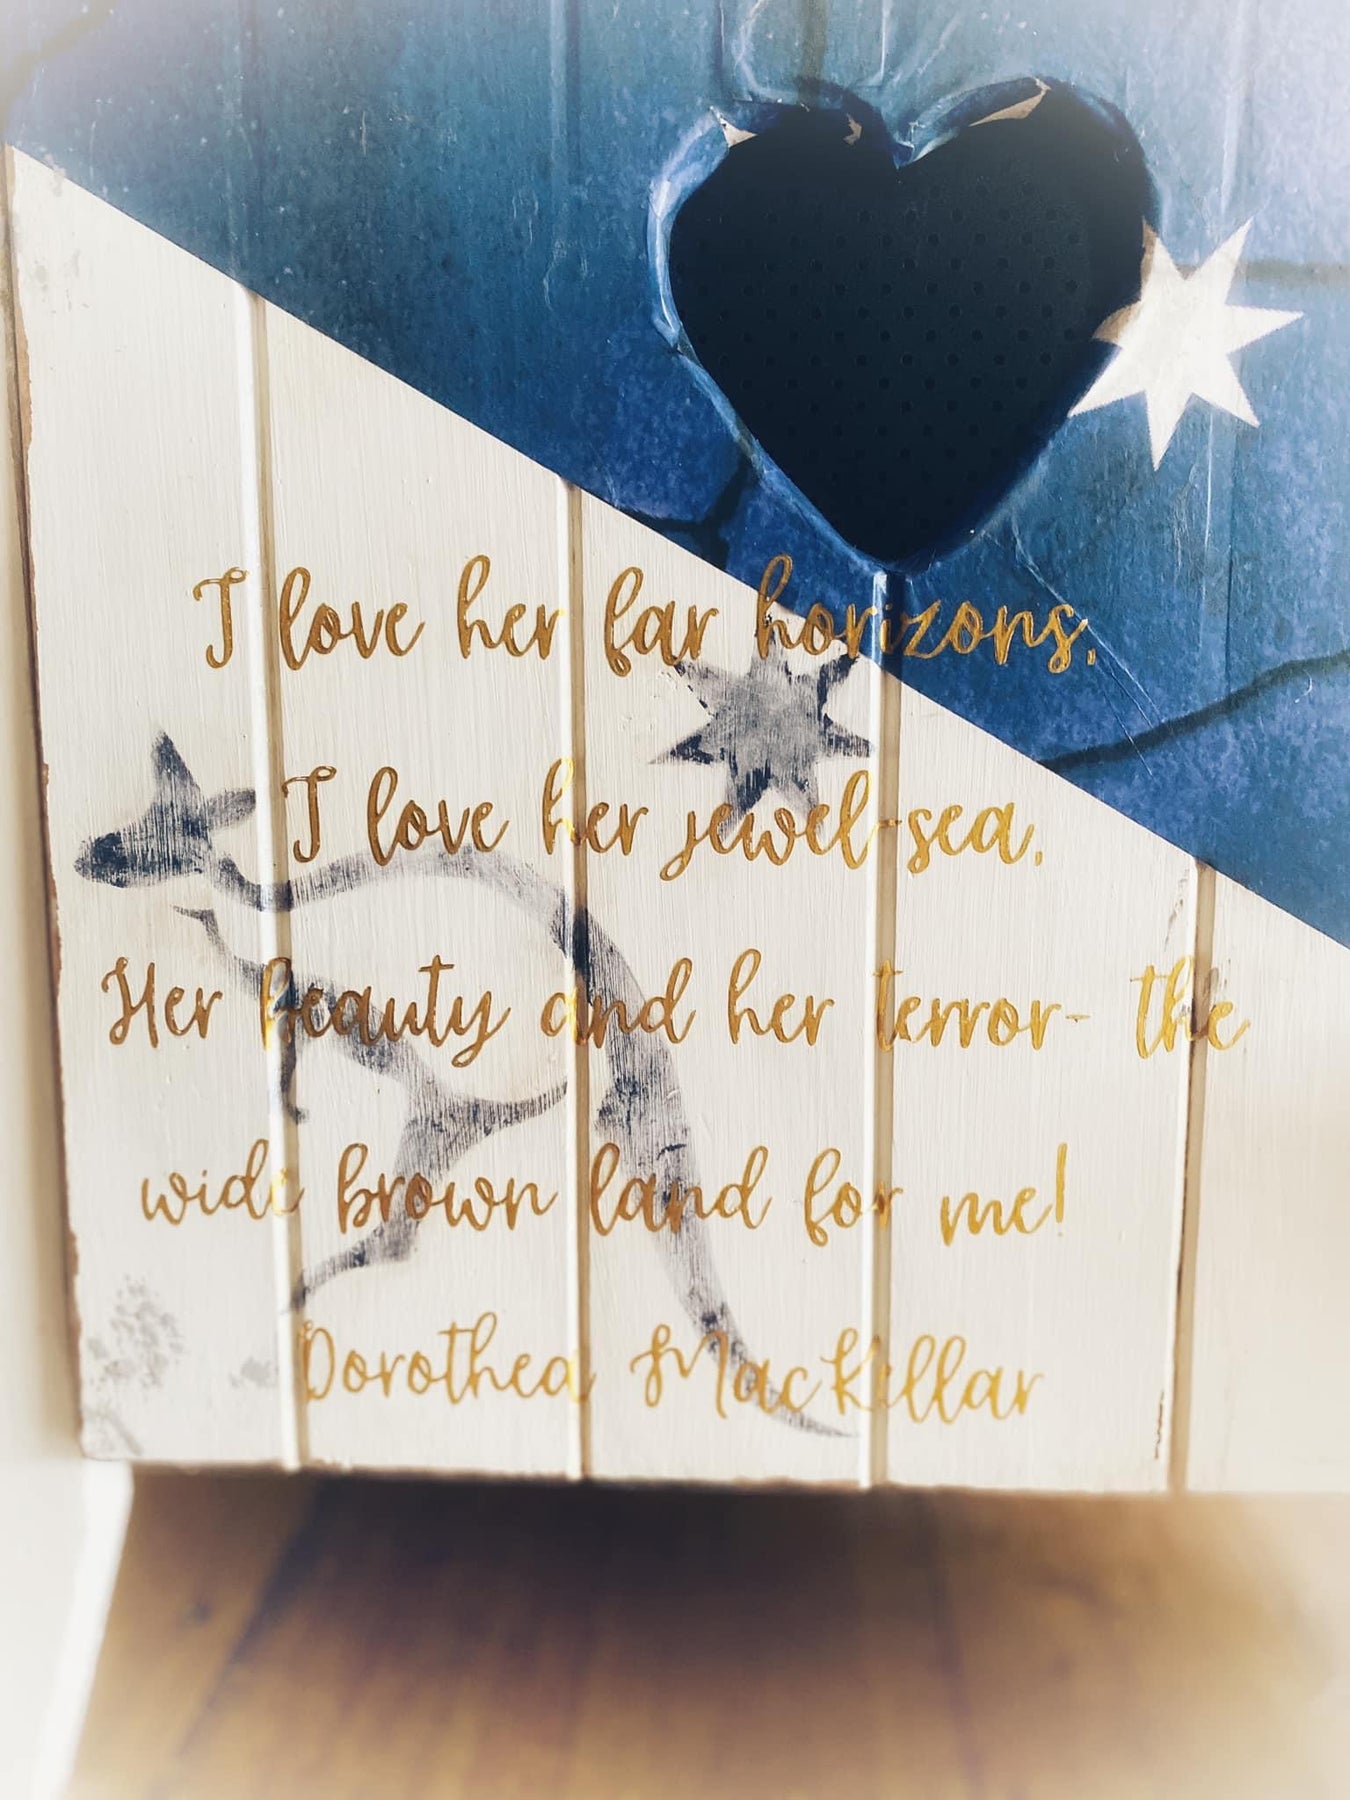 I love her far horizons,
I love her jewel-sea,
Her beauty and her terror- the
wide brown land for me!
Dorothea MacKillar